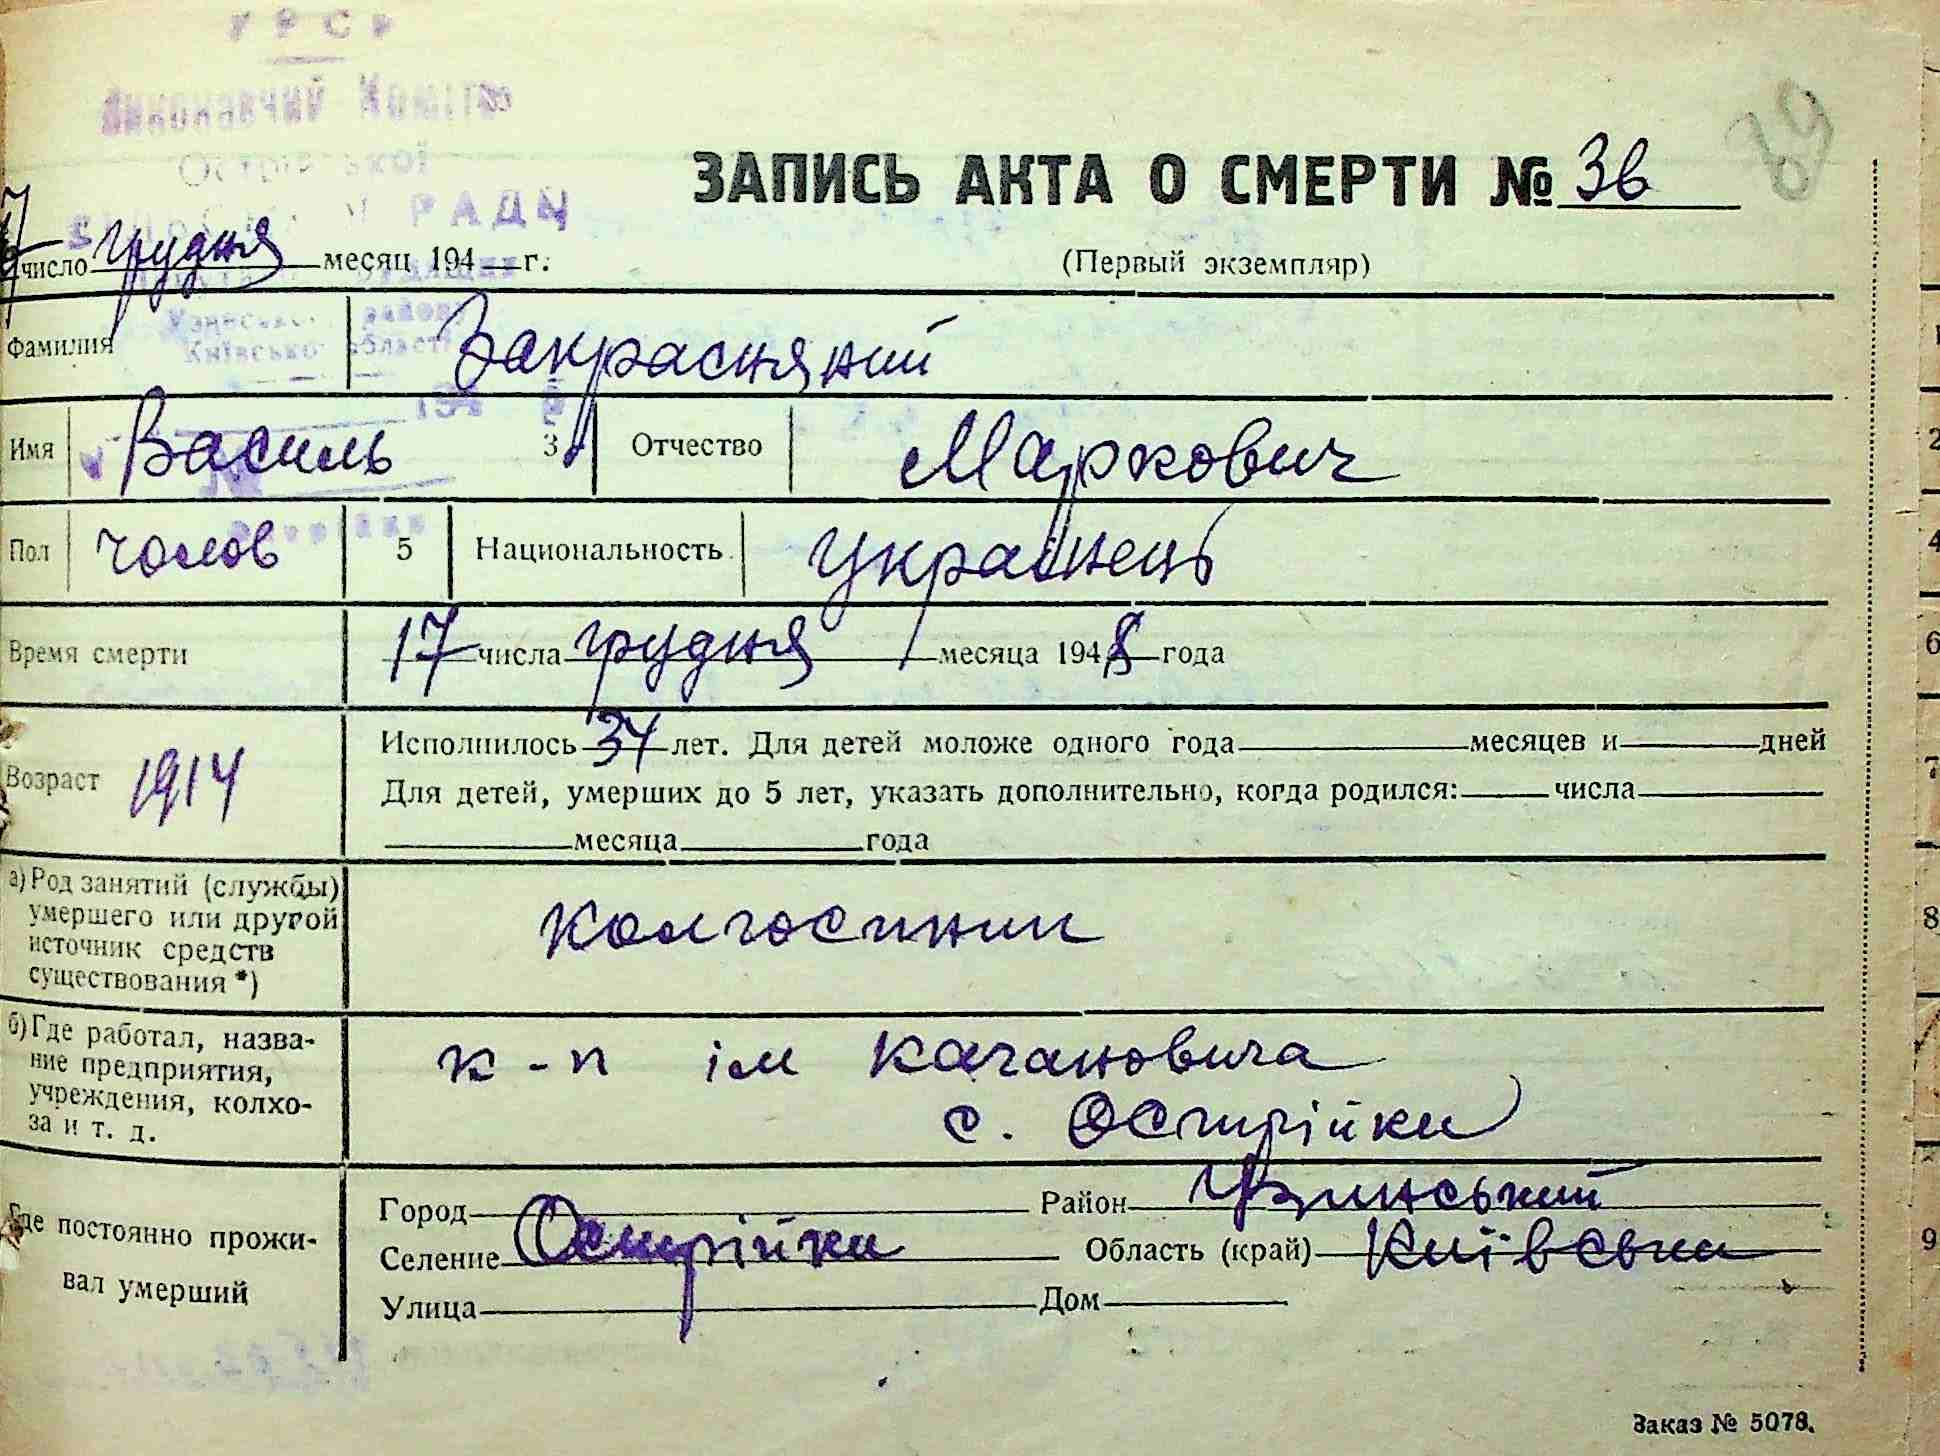 УРСР
Виконавчий Комітет
РАДИ
Київської області
ЗАПИСЬ АКТА О СМЕРТИ № 36
69
число грудня месяц 194 г.
(Первый экземпляр)
Фамилия Закрасняний
Имя Василь 3 Отчество Маркович
Пол чолов 5 Национальность Українець
Время смерти 17 числа грудня месяца 1948 года
Возраст 1914
Исполнилось 34 лет. Для детей моложе одного года месяцев и дней
Для детей, умерших до 5 лет, указать дополнительно, когда родился: числа
месяца года
а) Род занятий (службы) умершего или другой источник средств существования *)
колгоспник
б) Где работал, название предприятия, учреждения, колхоза и т. д.
к-п ім Кагановича
с. Острійки
Где постоянно проживал умерший
Город Район Узинський
Селение Острійки Область (край) Київська
Улица Дом
Заказ № 5078.
2
4
6
7
8
9